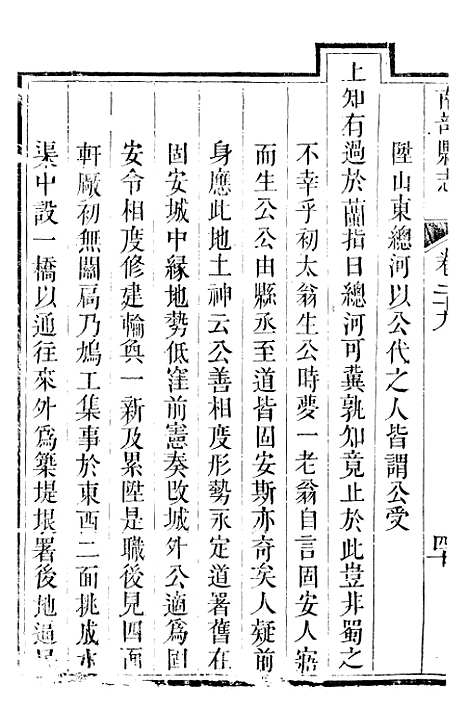 南部縣志
卷二十九
四十
陞山東總河以公代之人皆謂公受
上知有過於蘭指日總河可冀孰知竟止於此豈非蜀之
不幸乎初太翁生公時夢一老翁自言固安人寤
而生公公由縣丞至道皆固安斯亦奇矣人疑前
身應此地土神云公善相度形勢永定道署舊在
固安城中緣地勢低窪前憲奏改城外公適為固
安令相度修建輪奐一新及累陞是職後見四面
軒厰初無關扃乃鳩工集事於東西二面挑成水
渠中設一橋以通往來外為築堤堰署後地逼